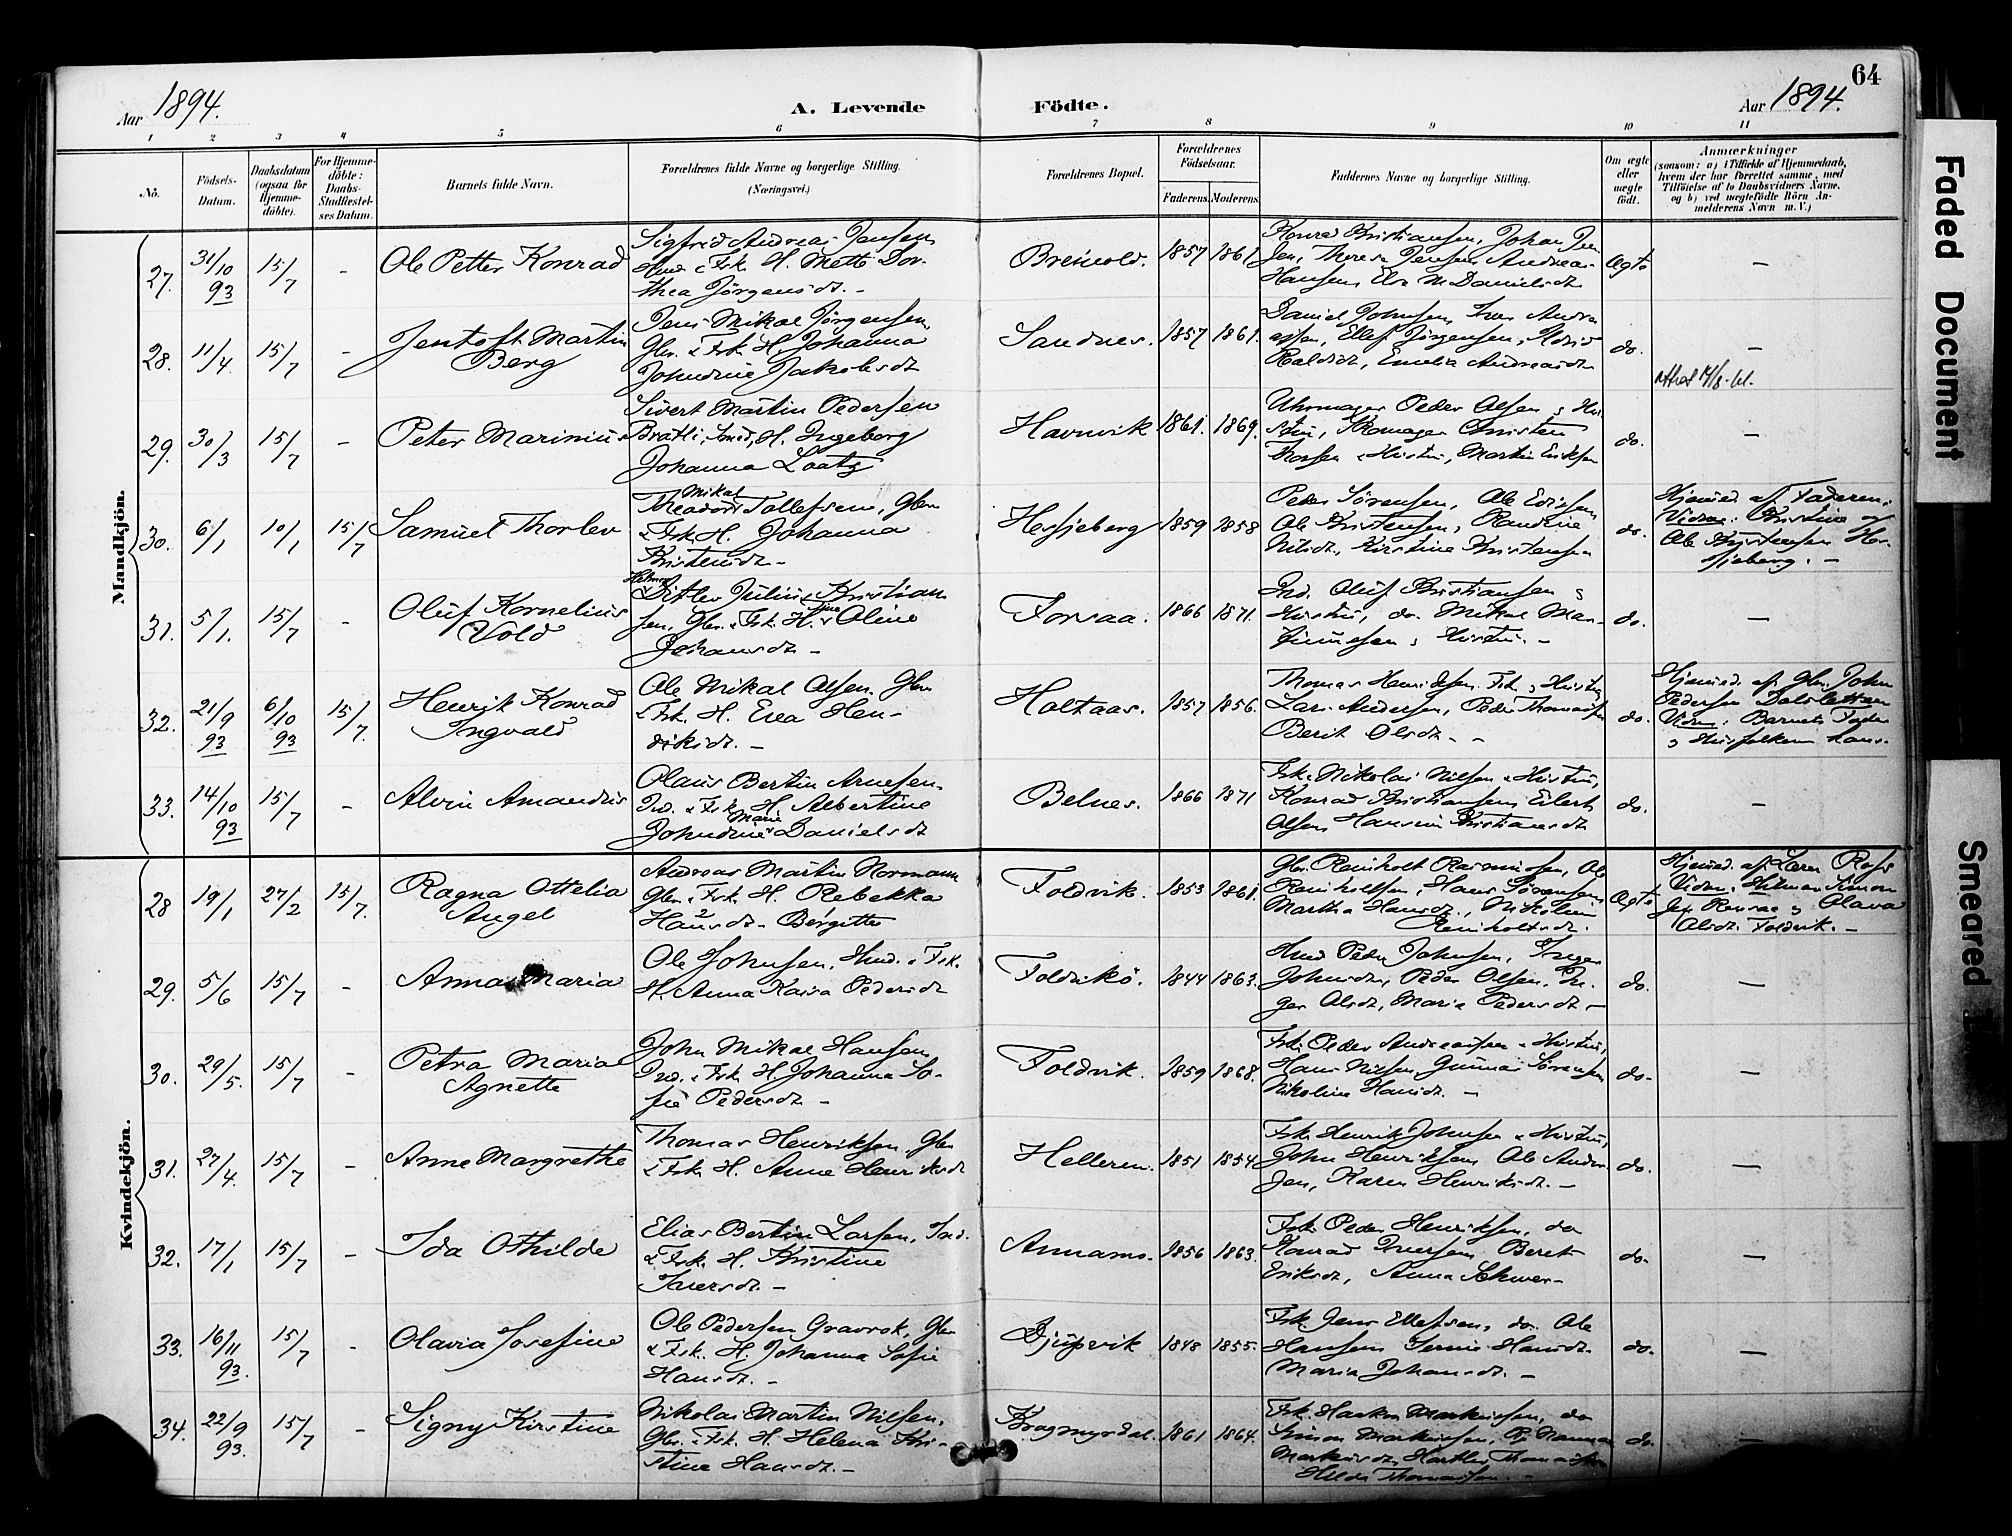 64
Aar 1894.
A. Levende Födte.
Aar 1894.
1 2 3 4 5 6 7 8 9 10 11
No.
Födsels-Datum.
Daabsdatum (ogsaa for Hjemme-döbte).
For Hjemme-döbte: Daabs-Stadfæstel-ses Datum.
Barnets fulde Navn.
Forældrenes fulde Navne og borgerlige Stilling. (Næringsvei.)
Forældrenes Bopæl.
Forældrenes Födselsaar.
Faderens. Moderens.
Faddernes Navne og borgerlige Stilling.
Om ægte eller uægte födt.
Anmærkninger
(saasom: a) i Tilfælde af Hjemmedaab,
hvem der har forrettet samme, med
Tilföielse af to Daabsvidners Navne,
og b) ved uægtefödte Börn An-
melderens Navn m. V.)
Mandkjön.
27. 31/10 93 15/7 - Ole Petter Konrad
Sigfred Andreas Jensen
Ind. & Fsk. H. Mette Dor-
thea Jörgensdt. -
Breivold. 1857 1861
Konrad Kristiansen, Johan Jen-
sen, Theresa Jensen Andreas
Hansen, Elen M Danielsdt
Ægte -
28. 11/4. 15/7 - Jentoft Martin
Berg
Jens Mikal Jörgensen,
Gbr. & Fsk. H. Johanna
Johndine Jakobsdt
Sandnes. 1857 1861.
Daniel Johnsen, Iver Andre-
assen, Ellef Jörgensen,
Emelie Andreasdt
do. -
29. 30/3 15/7 - Peter Marinius
Sivert Martin Pedersen
Bratli, Smed, H. Ingeborg
Johanna Laatz
Havnvik 1861. 1869.
Uhrmager Peder Olsen & Hu-
stru, Skomager Christen
Thorsen & Hustru, Martin Eriksen
do. -
30. 6/1 10/1 15/7 Samuel Thorlev
Mikal
Theodor Tollefsen, Gbr.
& Fsk. H. Johanna
Kristensdt. -
Hessjeberg 1859 1858
Peder Sörensen, Ole
Ole Kristensen, Randine
Nilsdt, Kirstine Kristensen
do.
Hjemmed. af Faderen.
Vidner: Kristine og
Ole Kristensen Hes-
sjeberg. -
31. 5/1. 15/7 - Oluf Kornelius
Vold
Ditlev Julius Kristian
sen, Gbr. & Fsk. H. Oline
Johansdt. -
Forsaa. 1866 1871.
Ind. Oluf Kristiansen &
Hustru, do. Mikal Mar-
& Hustru. -
do. -
32. 21/9 93 6/10 93 15/7. Henrik Konrad
Ingvald
Ole Mikal Olsen. Gbr.
& Fsk. H. Eva Hen-
riksdt. -
Holtaas. 1857 1856.
Thomas Henriksen. Fsk. & Hustru
Lars Andersen, Peder Thomassen
Berit Olsdt. -
do.
Hjemmed. af Gbr. John
Pedersen Dalsletten
Vidner: Barnets Fader
& Husfolkene hans.
33. 14/10 93 15/7 - Alvin Amandus
Olaus Bertin Arnesen.
Ind. & Fsk. H. Albertine
Marie
Johndine Danielsdt
Belnes. 1866 1871
Fsk. Nikolai Nilsen & Hustru,
Konrad Kristiansen, Eilert
Olsen, Hansine Kristiansdt
do. -
Kvindekjön.
28 19/1 27/2 15/7. Ragna Ottelia
Angel
Andreas Martin Normann
Gbr. & Fsk. H. Rebekka
Hansdt. Bergitte
Foldvik. 1853 1861.
Gbr. Reinholt Rasmussen, Ole
Reinholtsen, Hans Sörensen
Martha Hansdt., Nikoline
Reinholtsdt.
Ægte
Hjemmed. af
Simon
& Olava
Olsdt. Foldvik. -
29. 5/6 15/7 - Anna Maria
Ole Johnsen. Ind. & Fsk.
H. Anna Kaisa Pedersdt
Foldvikö. 1844 1863.
Ind Peder Johnsen, Inger
Johnsdt, Peder Olsen, In-
ger Olsdt, Maria Pedersdt -
do. -
30. 29/5. 15/7 - Petra Maria
Agnette
John Mikal Hansen
Ind. & Fsk. H. Johanna So-
fie Pedersdt -
Foldvik. 1859 1868.
Fsk. Peder Andreassen & Hustru,
Hans Nilsen, Gunnar Sörensen
Nikoline Hansdt. -
do. -
31. 27/4. 15/7 - Anne Margrethe
Thomas Henriksen, Gbr
& Fsk. H. Anne Henriksdt
Helleren. 1851 1854
Fsk. Henrik Johnsen & Hustru,
John Henriksen, Ole Ander-
sen, Karen Henriksdt. -
do. -
32. 17/1 15/7 - Ida Othilde
Elias Bertin Larsen, Ind.
& Fsk. H. Kristine
Iversdt. -
Annamo. 1856 1863.
Fsk. Peder Henriksen, do
Konrad Iversen, Beret
Eriksdt, Anna
do. -
33. 16/11 93. 15/7 - Olavia Josefine
Ole Pedersen Gravrok, Gbr
& Fsk. H. Johanna Sofie
Hansdt. -
Djupvik 1848 1855.
Fsk. Jens Ellefsen, do. Ole
Hansen, Hansdt.
Maria Johansdt. -
do. -
34. 22/9 93. 15/7 - Signy Kirstine
Nikolai Martin Nilsen,
Gbr. & Fsk. H. Helena Kri-
stine Hansdt. -
Krogmyrdal. 1861 1864.
Fsk. Haakon Markussen, do
Simon Markussen,
Markusdt,
Hilda Thomassen. -
do. -
Faded Document
Smeared